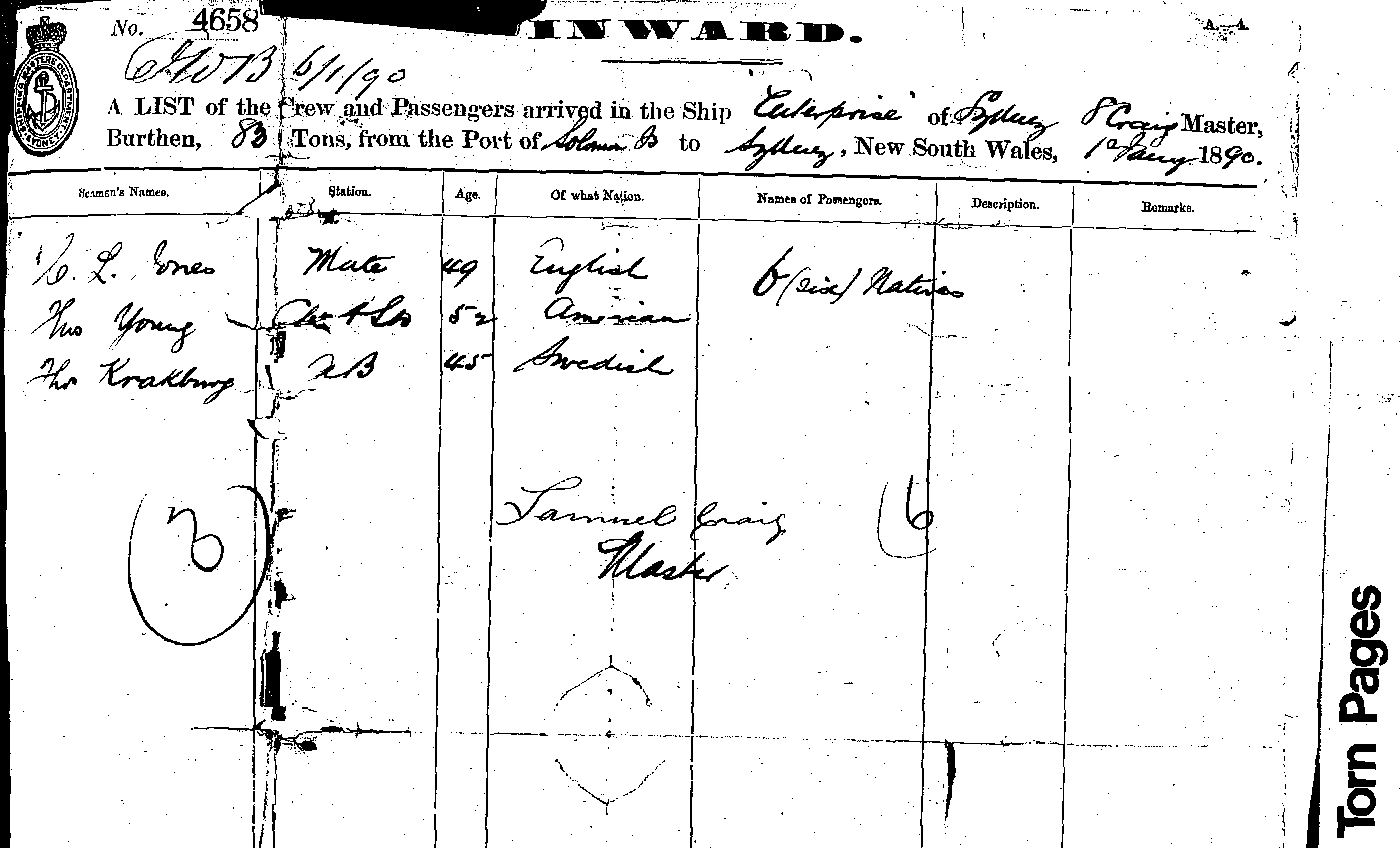 No. 4658
INWARD.
A. 4.
6/1/90
A LIST of the Crew and Passengers arrived in the Ship "Enterprise" of Sydney S Craig Master,
Burthen, 83 Tons, from the Port of Solomon Is to Sydney, New South Wales, 1st Jany 1890.
Seamen's Names. Station. Age. Of what Nation. Names of Passengers. Description. Remarks.
L. Jones Mate 49 English 6 (six) Natives
Thos Young 52 American
Thos Krakburg AB 45 Swedish
3
6
Samuel Craig
Master
Torn Pages